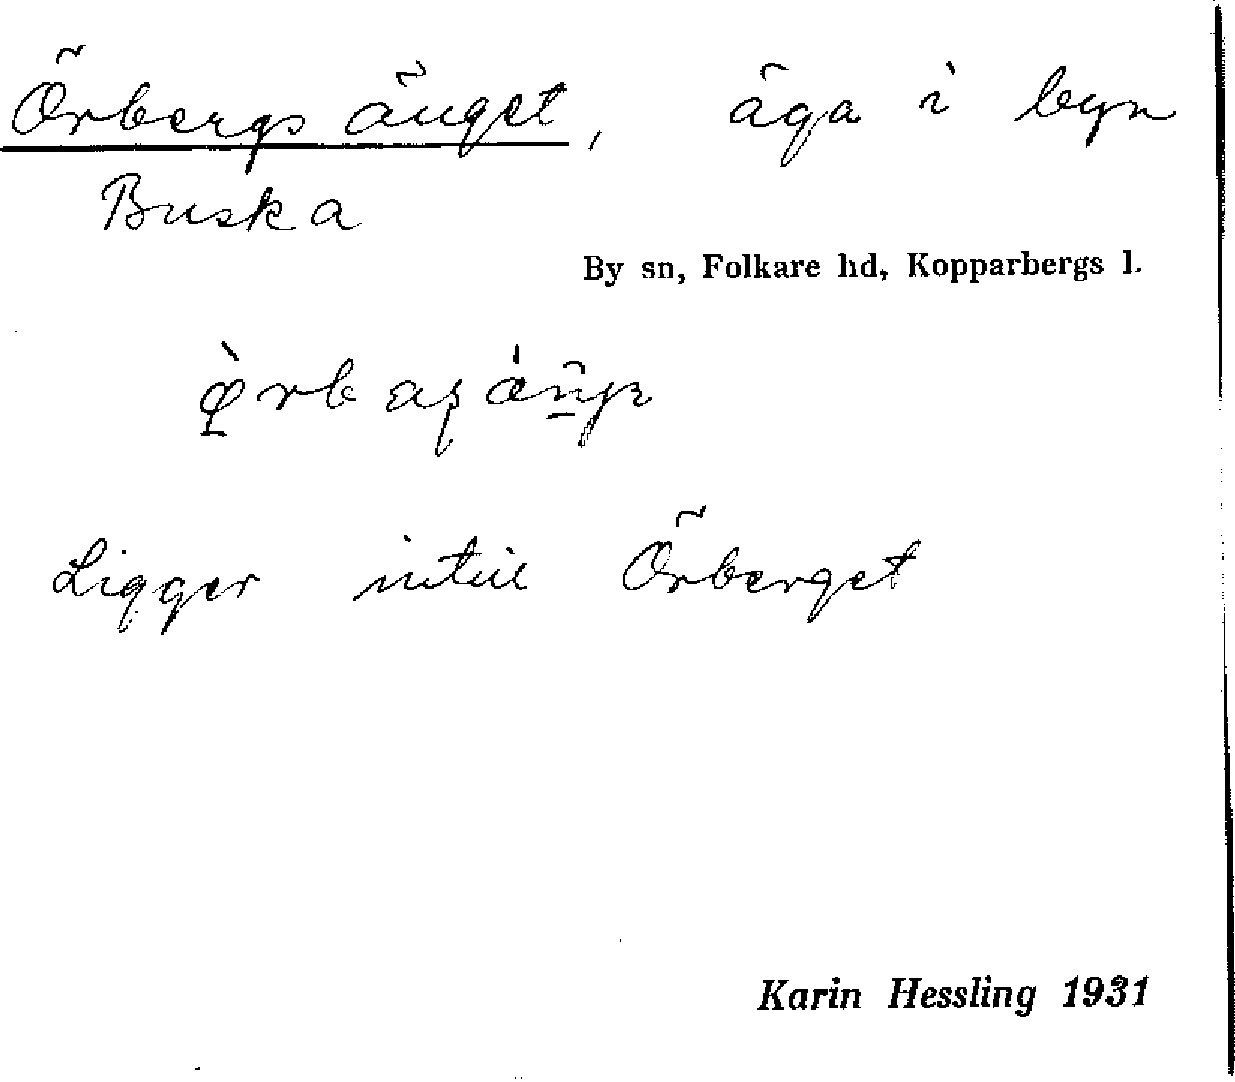 Örbergsänget, äga i byn
Buska
By sn, Folkare hd, Kopparbergs l.
Ligger intill Örberget
Karin Hessling 1931